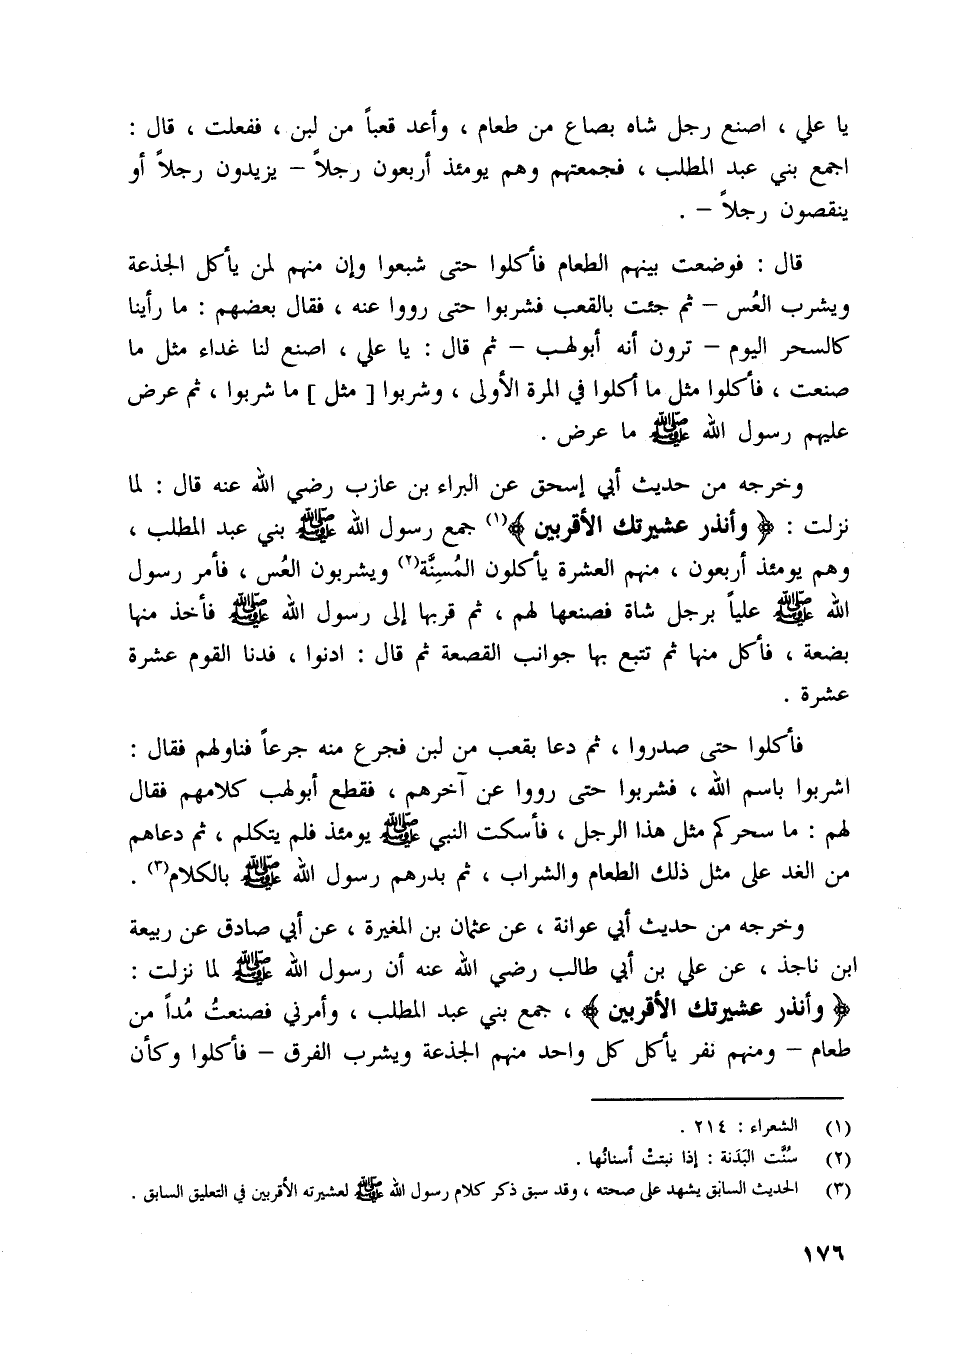 يا علي ، اصنع رجل شاه بصاع من طعام ، وأعد قعباً من لبن ، ففعلت ، قال :
اجمع بني عبد المطلب ، فجمعتهم وهم يومئذ أربعون رجلاً – يزيدون رجلاً أو
ينقصون رجلاً – .
قال : فوضعت بينهم الطعام فأكلوا حتى شبعوا وإن منهم لمن يأكل الجذعة
ويشرب العُس – ثم جئت بالقعب فشربوا حتى رووا عنه ، فقال بعضهم : ما رأينا
كالسحر اليوم – ترون أنه أبولهب – ثم قال : يا علي ، اصنع لنا غداء مثل ما
صنعت ، فأكلوا مثل ما أكلوا في المرة الأولى ، وشربوا [ مثل ] ما شربوا ، ثم عرض
عليهم رسول الله ﷺ ما عرض .
وخرجه من حديث أبي إسحق عن البراء بن عازب رضي الله عنه قال : لما
نزلت : ﴿ وأنذر عشيرتك الأقربين ﴾(١) جمع رسول الله ﷺ بني عبد المطلب ،
وهم يومئذ أربعون ، منهم العشرة يأكلون المُسِنَّة(٢) ويشربون العُس ، فأمر رسول
الله ﷺ علياً برجل شاة فصنعها لهم ، ثم قربها إلى رسول الله ﷺ فأخذ منها
بضعة ، فأكل منها ثم تتبع بها جوانب القصعة ثم قال : ادنوا ، فدنا القوم عشرة
عشرة .
فأكلوا حتى صدروا ، ثم دعا بقعب من لبن فجرع منه جرعاً فناولهم فقال :
اشربوا باسم الله ، فشربوا حتى رووا عن آخرهم ، فقطع أبولهب كلامهم فقال
لهم : ما سحركم مثل هذا الرجل ، فأسكت النبي ﷺ يومئذ فلم يتكلم ، ثم دعاهم
من الغد على مثل ذلك الطعام والشراب ، ثم بدرهم رسول الله ﷺ بالكلام(٣) .
وخرجه من حديث أبي عوانة ، عن عثمان بن المغيرة ، عن أبي صادق عن ربيعة
ابن ناجذ ، عن علي بن أبي طالب رضي الله عنه أن رسول الله ﷺ لما نزلت :
﴿ وأنذر عشيرتك الأقربين ﴾ ، جمع بني عبد المطلب ، وأمرني فصنعتُ مُداً من
طعام – ومنهم نفر يأكل كل واحد منهم الجذعة ويشرب الفرق – فأكلوا وكأن
(١) الشعراء : ٢١٤ .
(٢) سُنَّت البَدَنة : إذا نبتتْ أسنانُها .
(٣) الحديث السابق يشهد على صحته ، وقد سبق ذكر كلام رسول الله ﷺ لعشيرته الأقربين في التعليق السابق .
١٧٦